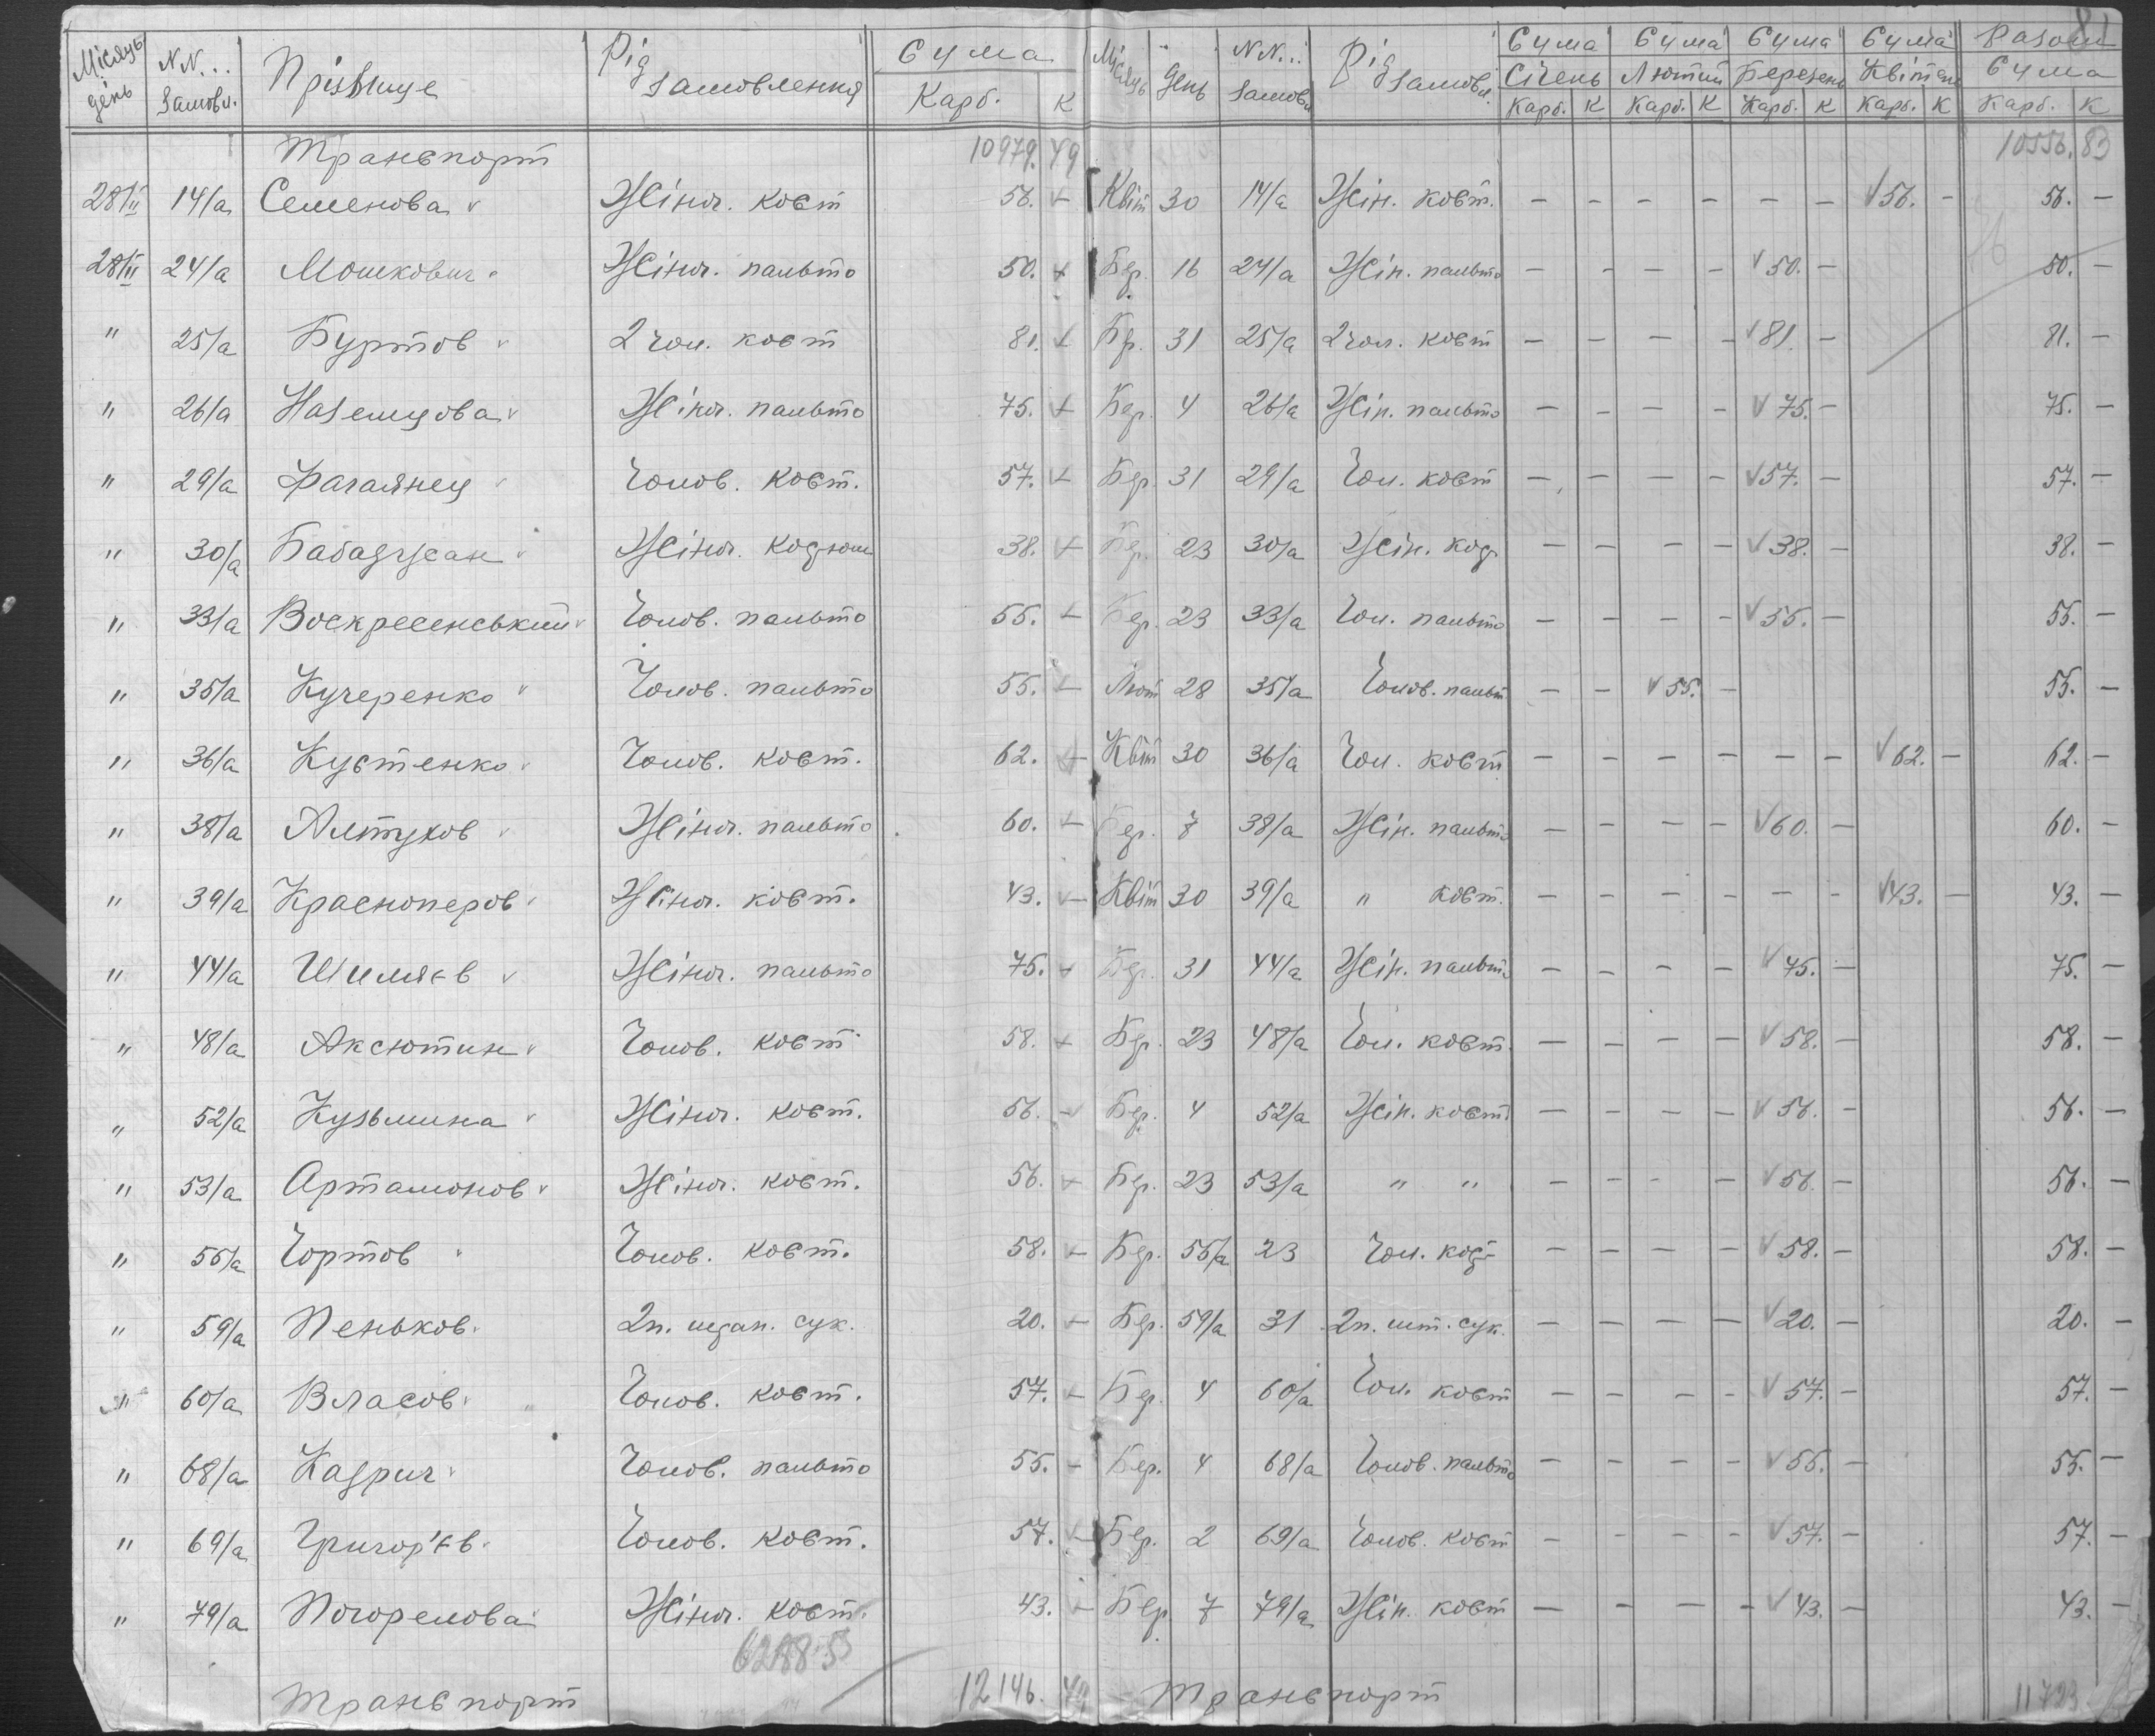 8
Місяць день NN... Замовл. Прізвище Рід замовлення Сума Карб. К Місяць День NN... Замовл. Рід замовл. Сума Січень Карб. К Сума Лютий Карб. К Сума Березень Карб. К Сума Квітень Карб. К Разом Сума Карб. К
Транспорт 10979. 49 10556. 83
28/II 14/а Семенова Жіноч. кост 56. – Квіт 30 14/а Жін. кост. – – – – – – 56. – 56. –
28/II 24/а Мошкович Жіноч. пальто 50. – Бер. 16 24/а Жін. пальто – – – – 50. – 50. –
" 25/а Буртов 2 чол. кост 81. – Бр. 31 25/а 2 чол. кост – – – – 81. – 81. –
" 26/а Наземцова Жіноч. пальто 75. – Бер. 4 26/а Жін. пальто – – – – 75. – 75. –
" 29/а Фагаянец Чолов. кост. 57. – Бер. 31 29/а Чол. кост – – – – 57. – 57. –
" 30/а Бабаджан Жіноч. костюм 38. – Бер. 23 30/а Жін. кост – – – – 38. – 38. –
" 33/а Воскресенський Чолов. пальто 55. – Бер. 23 33/а Чол. пальто – – – – 55. – 55. –
" 35/а Кучеренко Чолов. пальто 55. – Лют 28 35/а Чолов. пальт – – 55. – 55. –
" 36/а Кустенко Чолов. кост. 62. – Квіт 30 36/а Чол. кост – – – – – – 62. – 62. –
" 38/а Алтухов Жіноч. пальто 60. – Бер. 7 38/а Жін. пальто – – – – 60. – 60. –
" 39/а Красноперов Жіноч. кост. 43. – Квіт 30 39/а " кост. – – – – – – 43. – 43. –
" 44/а Шиляєв Жіноч. пальто 75. – Бер. 31 44/а Жін. пальто – – – – 75. – 75. –
" 48/а Аксютин Чолов. кост 58. – Бер. 23 48/а Чол. кост. – – – – 58. – 58. –
" 52/а Кузьмина Жіноч. кост. 56. – Бер. 4 52/а Жін. кост. – – – – 56. – 56. –
" 53/а Артамонов Жіноч. кост. 56. – Бер. 23 53/а " " – – – – 56. – 56. –
" 55/а Чортов Чолов. кост. 58. – Бер. 55/а 23 Чол. кост – – – – 58. – 58. –
" 59/а Пеньков 2п. штан. сук. 20. – Бер. 59/а 31 2п. шт. сук. – – – – 20. – 20. –
" 60/а Власов Чолов. кост. 57. – Бер. 4 60/а Чол. кост – – – – 57. – 57. –
" 68/а Кадрич Чолов. пальто 55. – Бер. 4 68/а Чолов. пальто – – – – 55. – 55. –
" 69/а Григор'єв Чолов. кост. 57. – Бер. 2 69/а Чолов. кост – – – – 57. – 57. –
" 79/а Погорелова Жіноч. кост. 43. – Бер. 7 79/а Жін. кост – – – – 43. – 43. –
Транспорт 12146. 49 Транспорт 11723